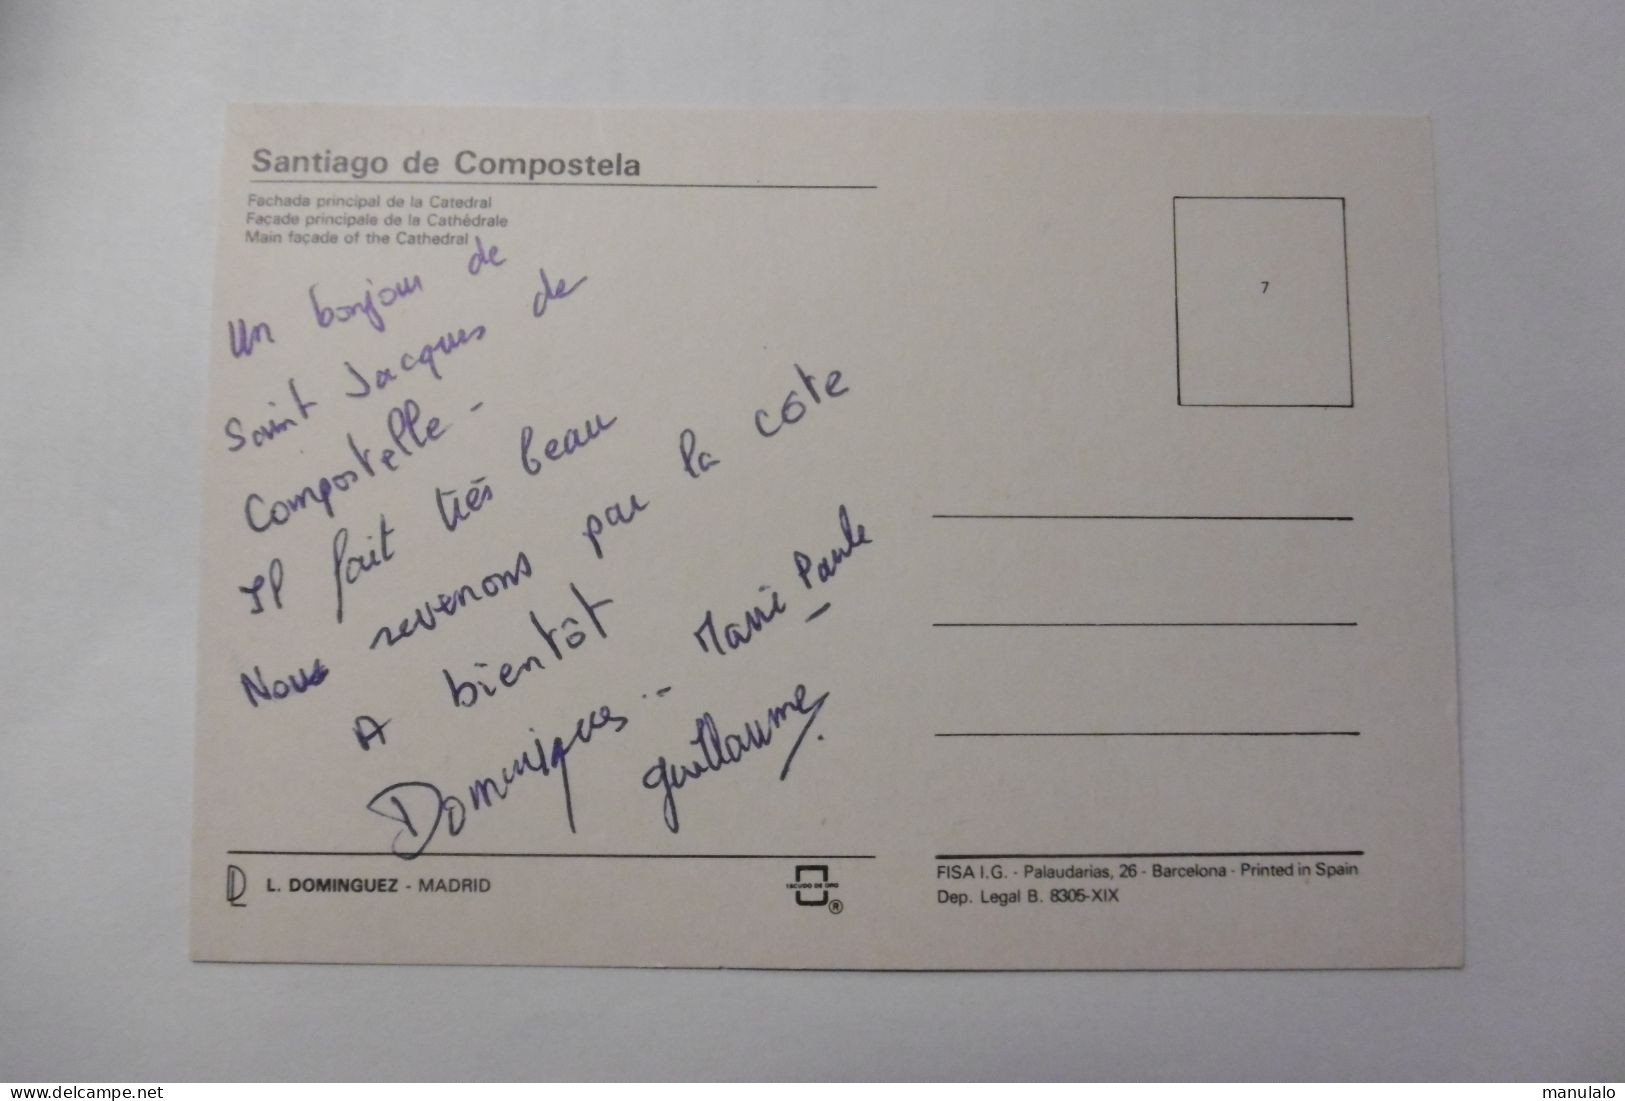 Santiago de Compostela
Fachada principal de la Catedral
Façade principale de la Cathédrale
Main façade of the Cathedral
Un bonjour de
Saint Jacques de
Compostelle -
Il fait très beau
Nous revenons par la côte
A bientôt
Marie Paule
Dominique
Guillaume
7
L. DOMINGUEZ - MADRID
ESCUDO DE ORO
®
FISA I.G. - Palaudarias, 26 - Barcelona - Printed in Spain
Dep. Legal B. 8305-XIX
delcampe.net
manulalo